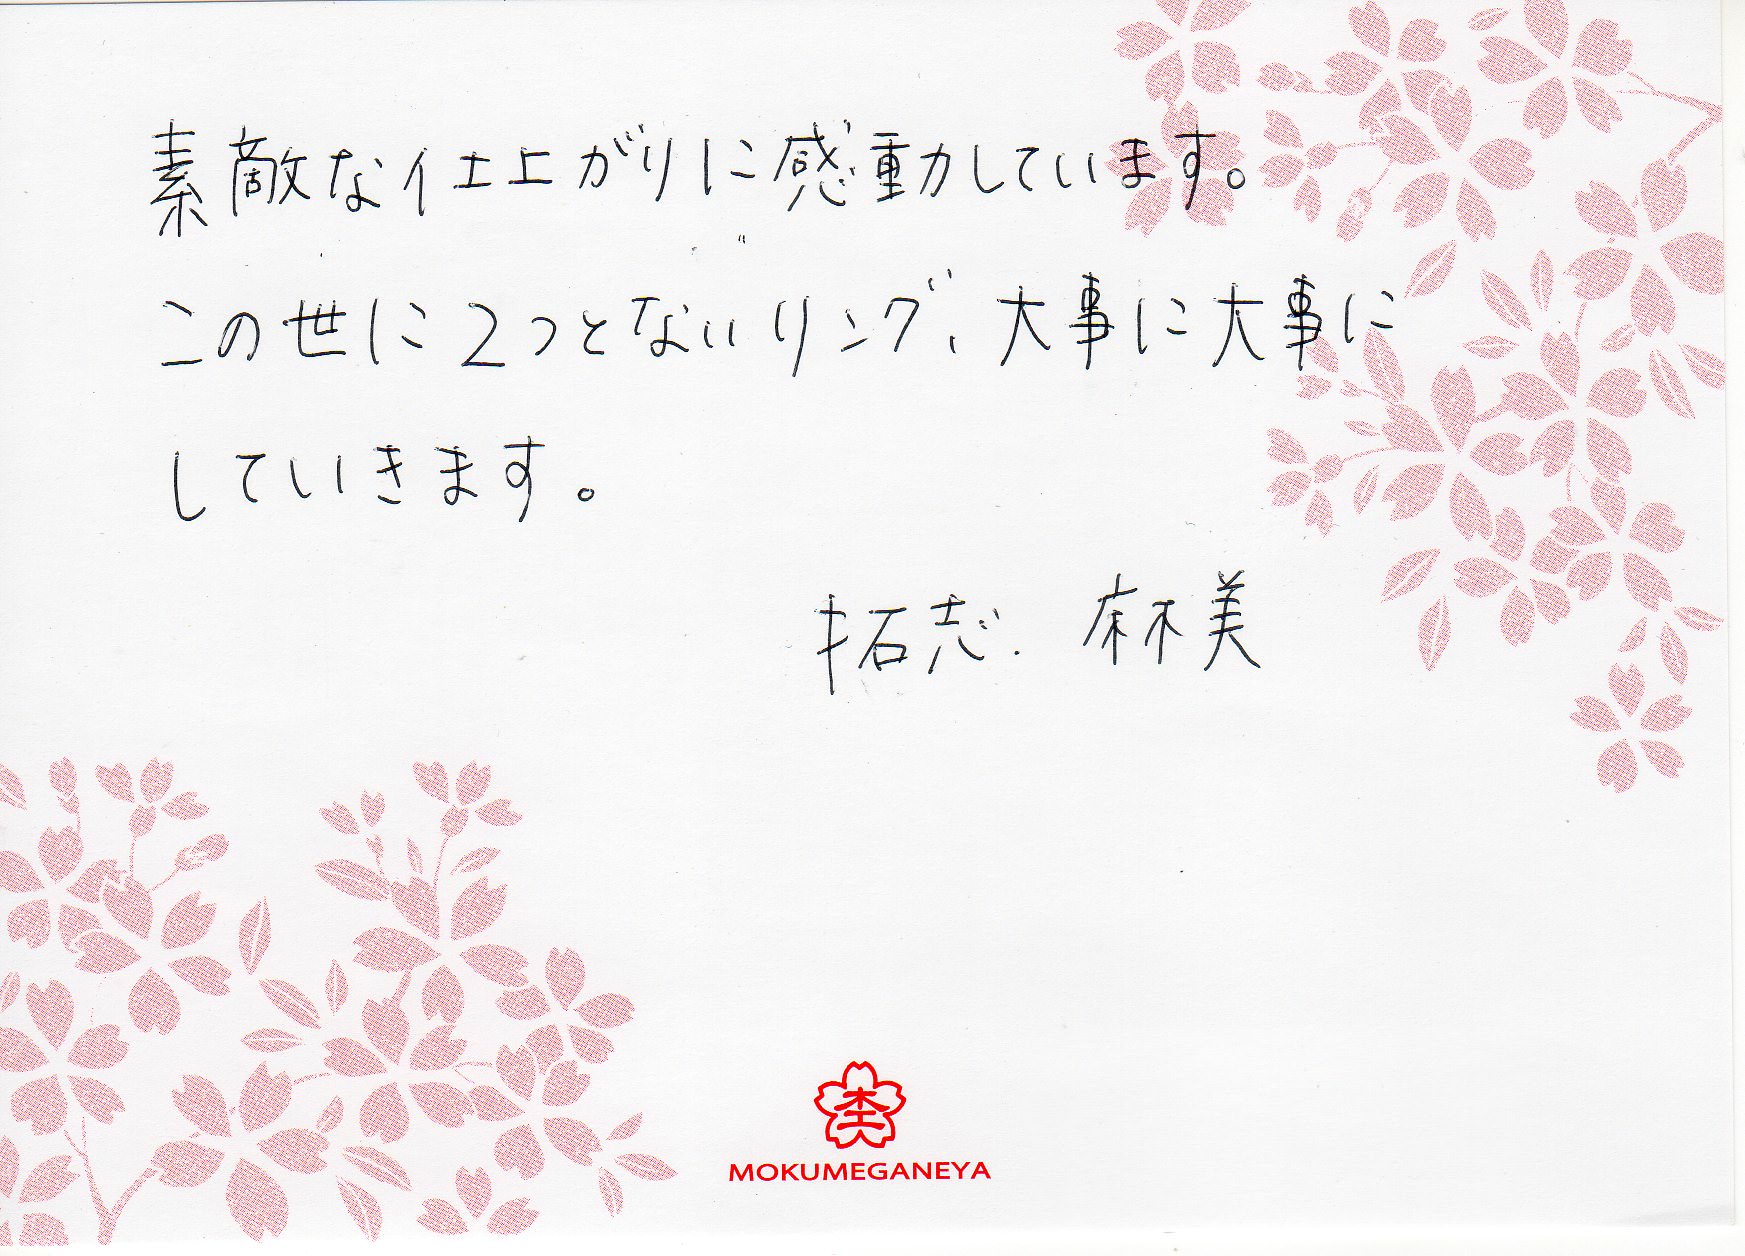 素敵な仕上がりに感動しています。
この世に2つとないリング、大事に大事に
していきます。
拓志. 麻美
MOKUMEGANEYA